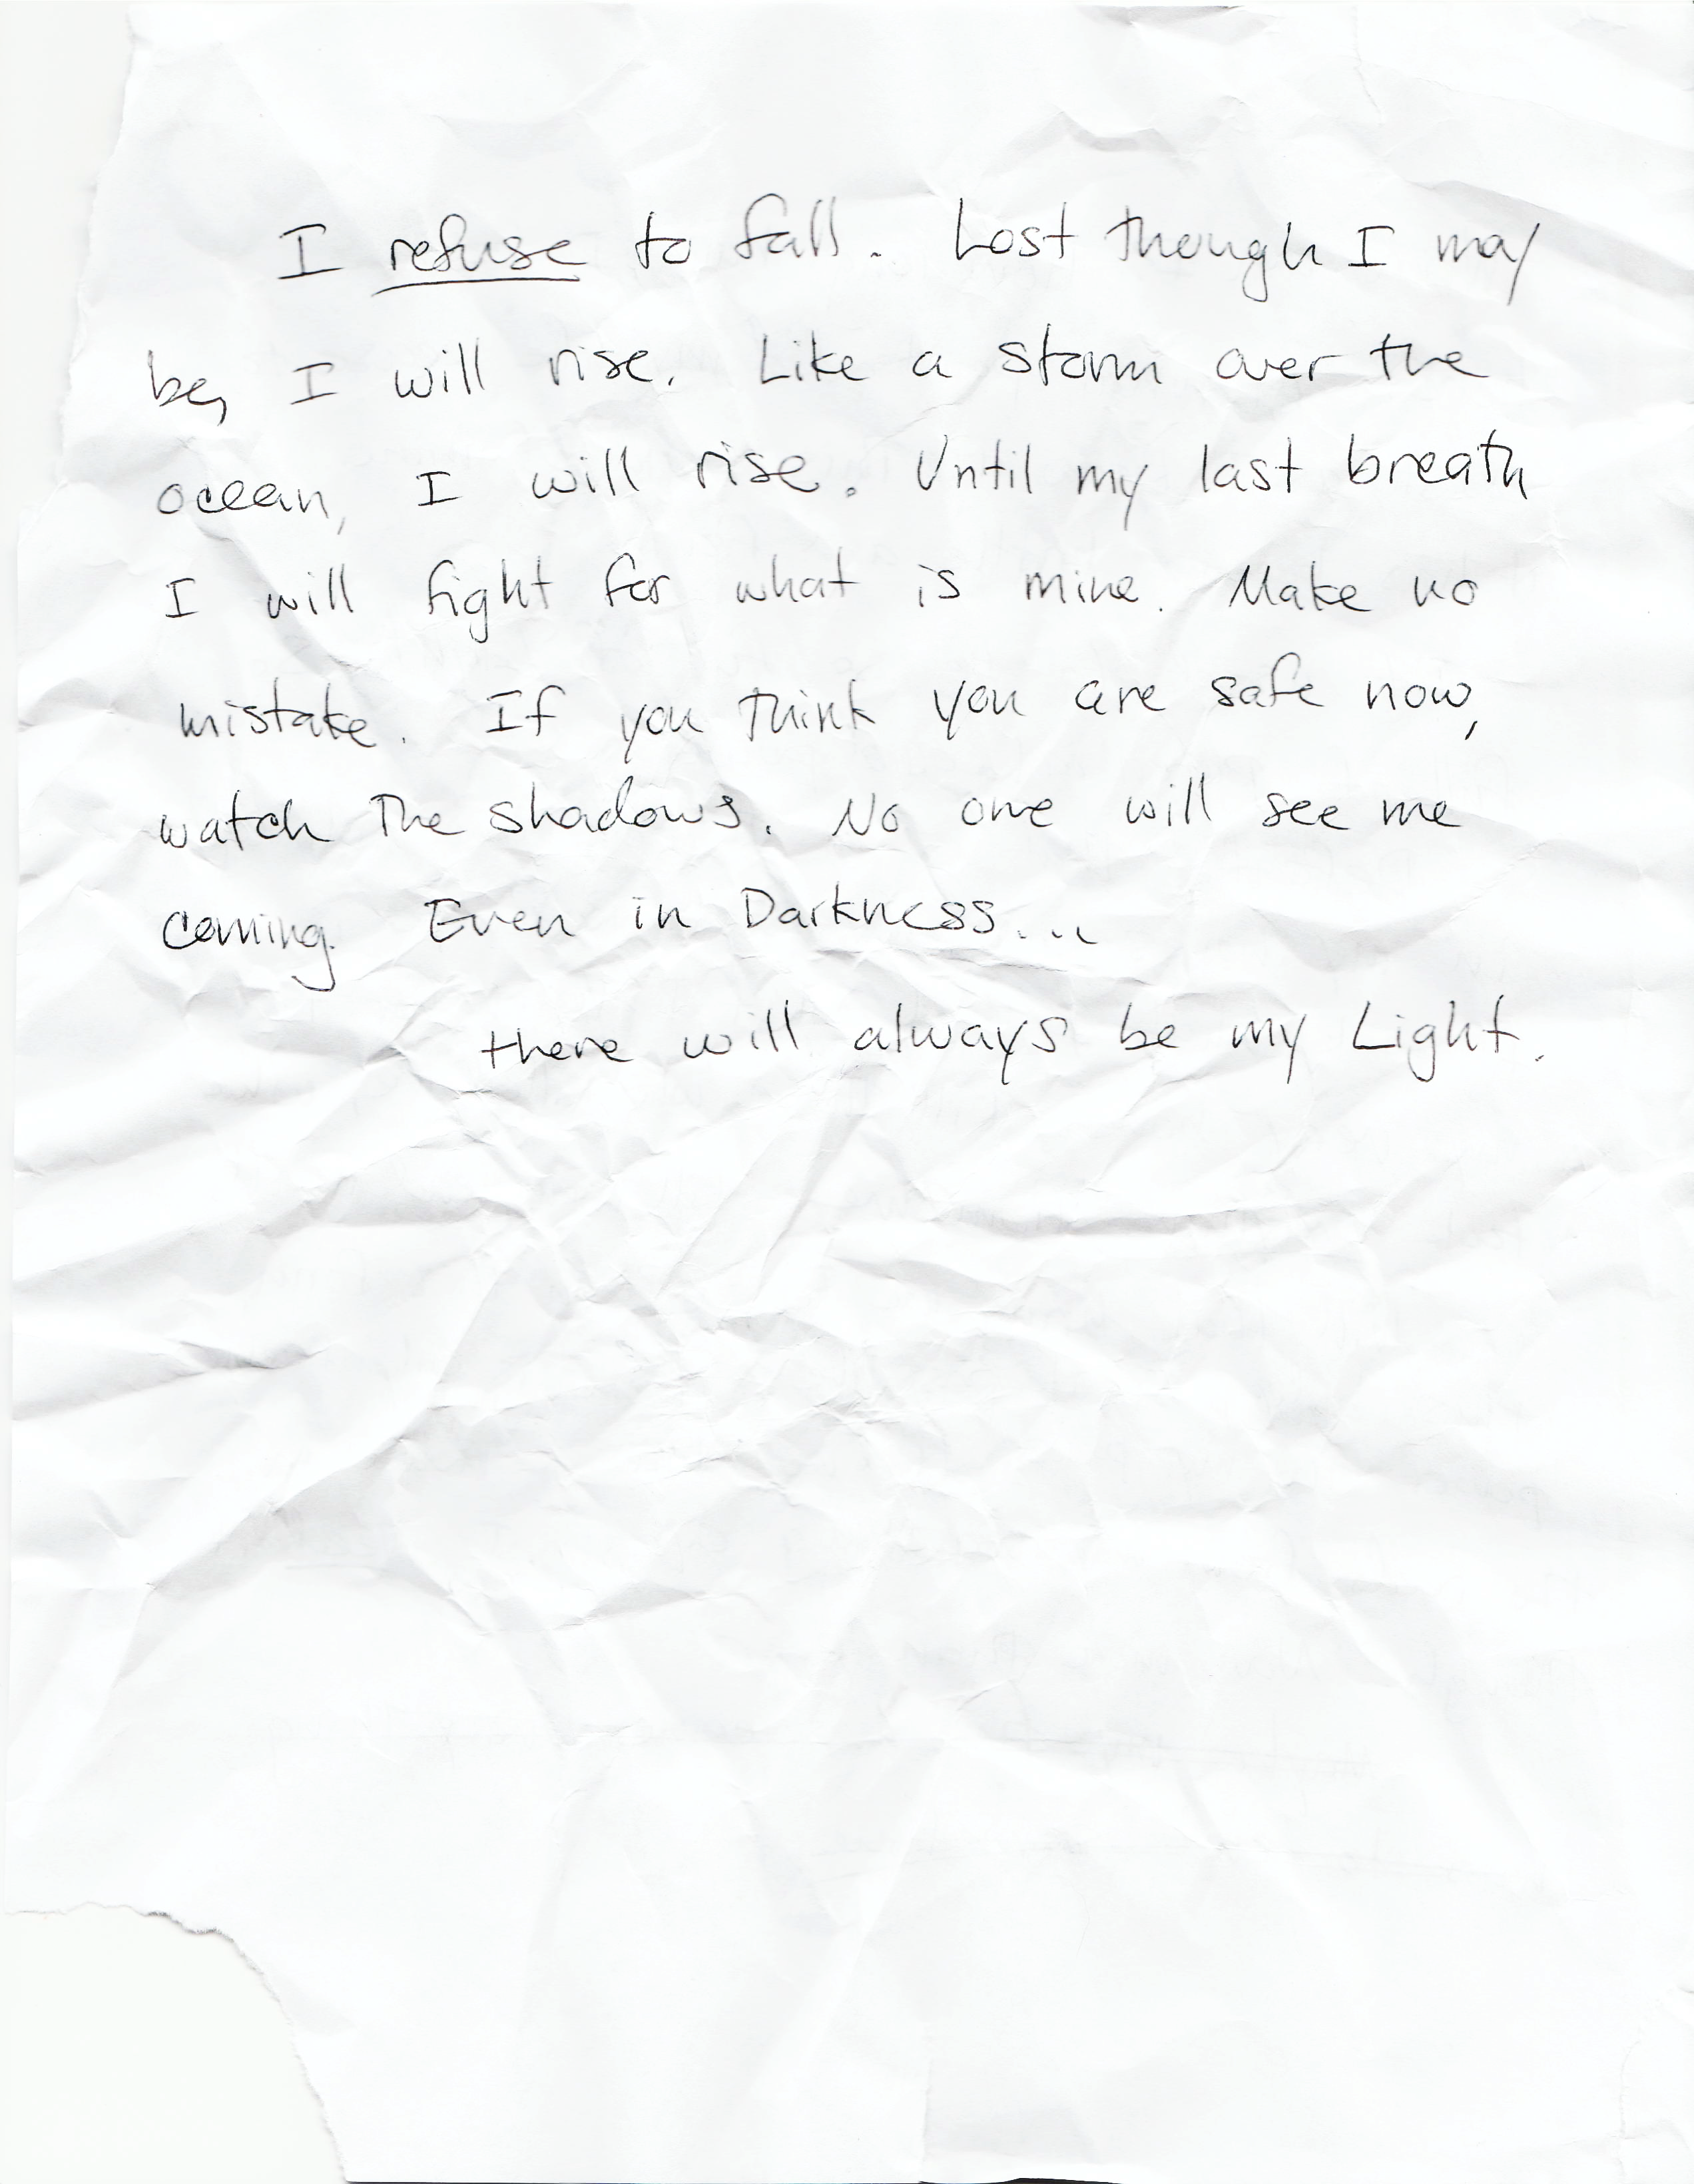 I refuse to fall. Lost though I may
be, I will rise. Like a storm over the
ocean, I will rise. Until my last breath
I will fight for what is mine. Make no
mistake. If you think you are safe now,
watch the shadows. No one will see me
coming. Even in Darkness...
there will always be my Light.